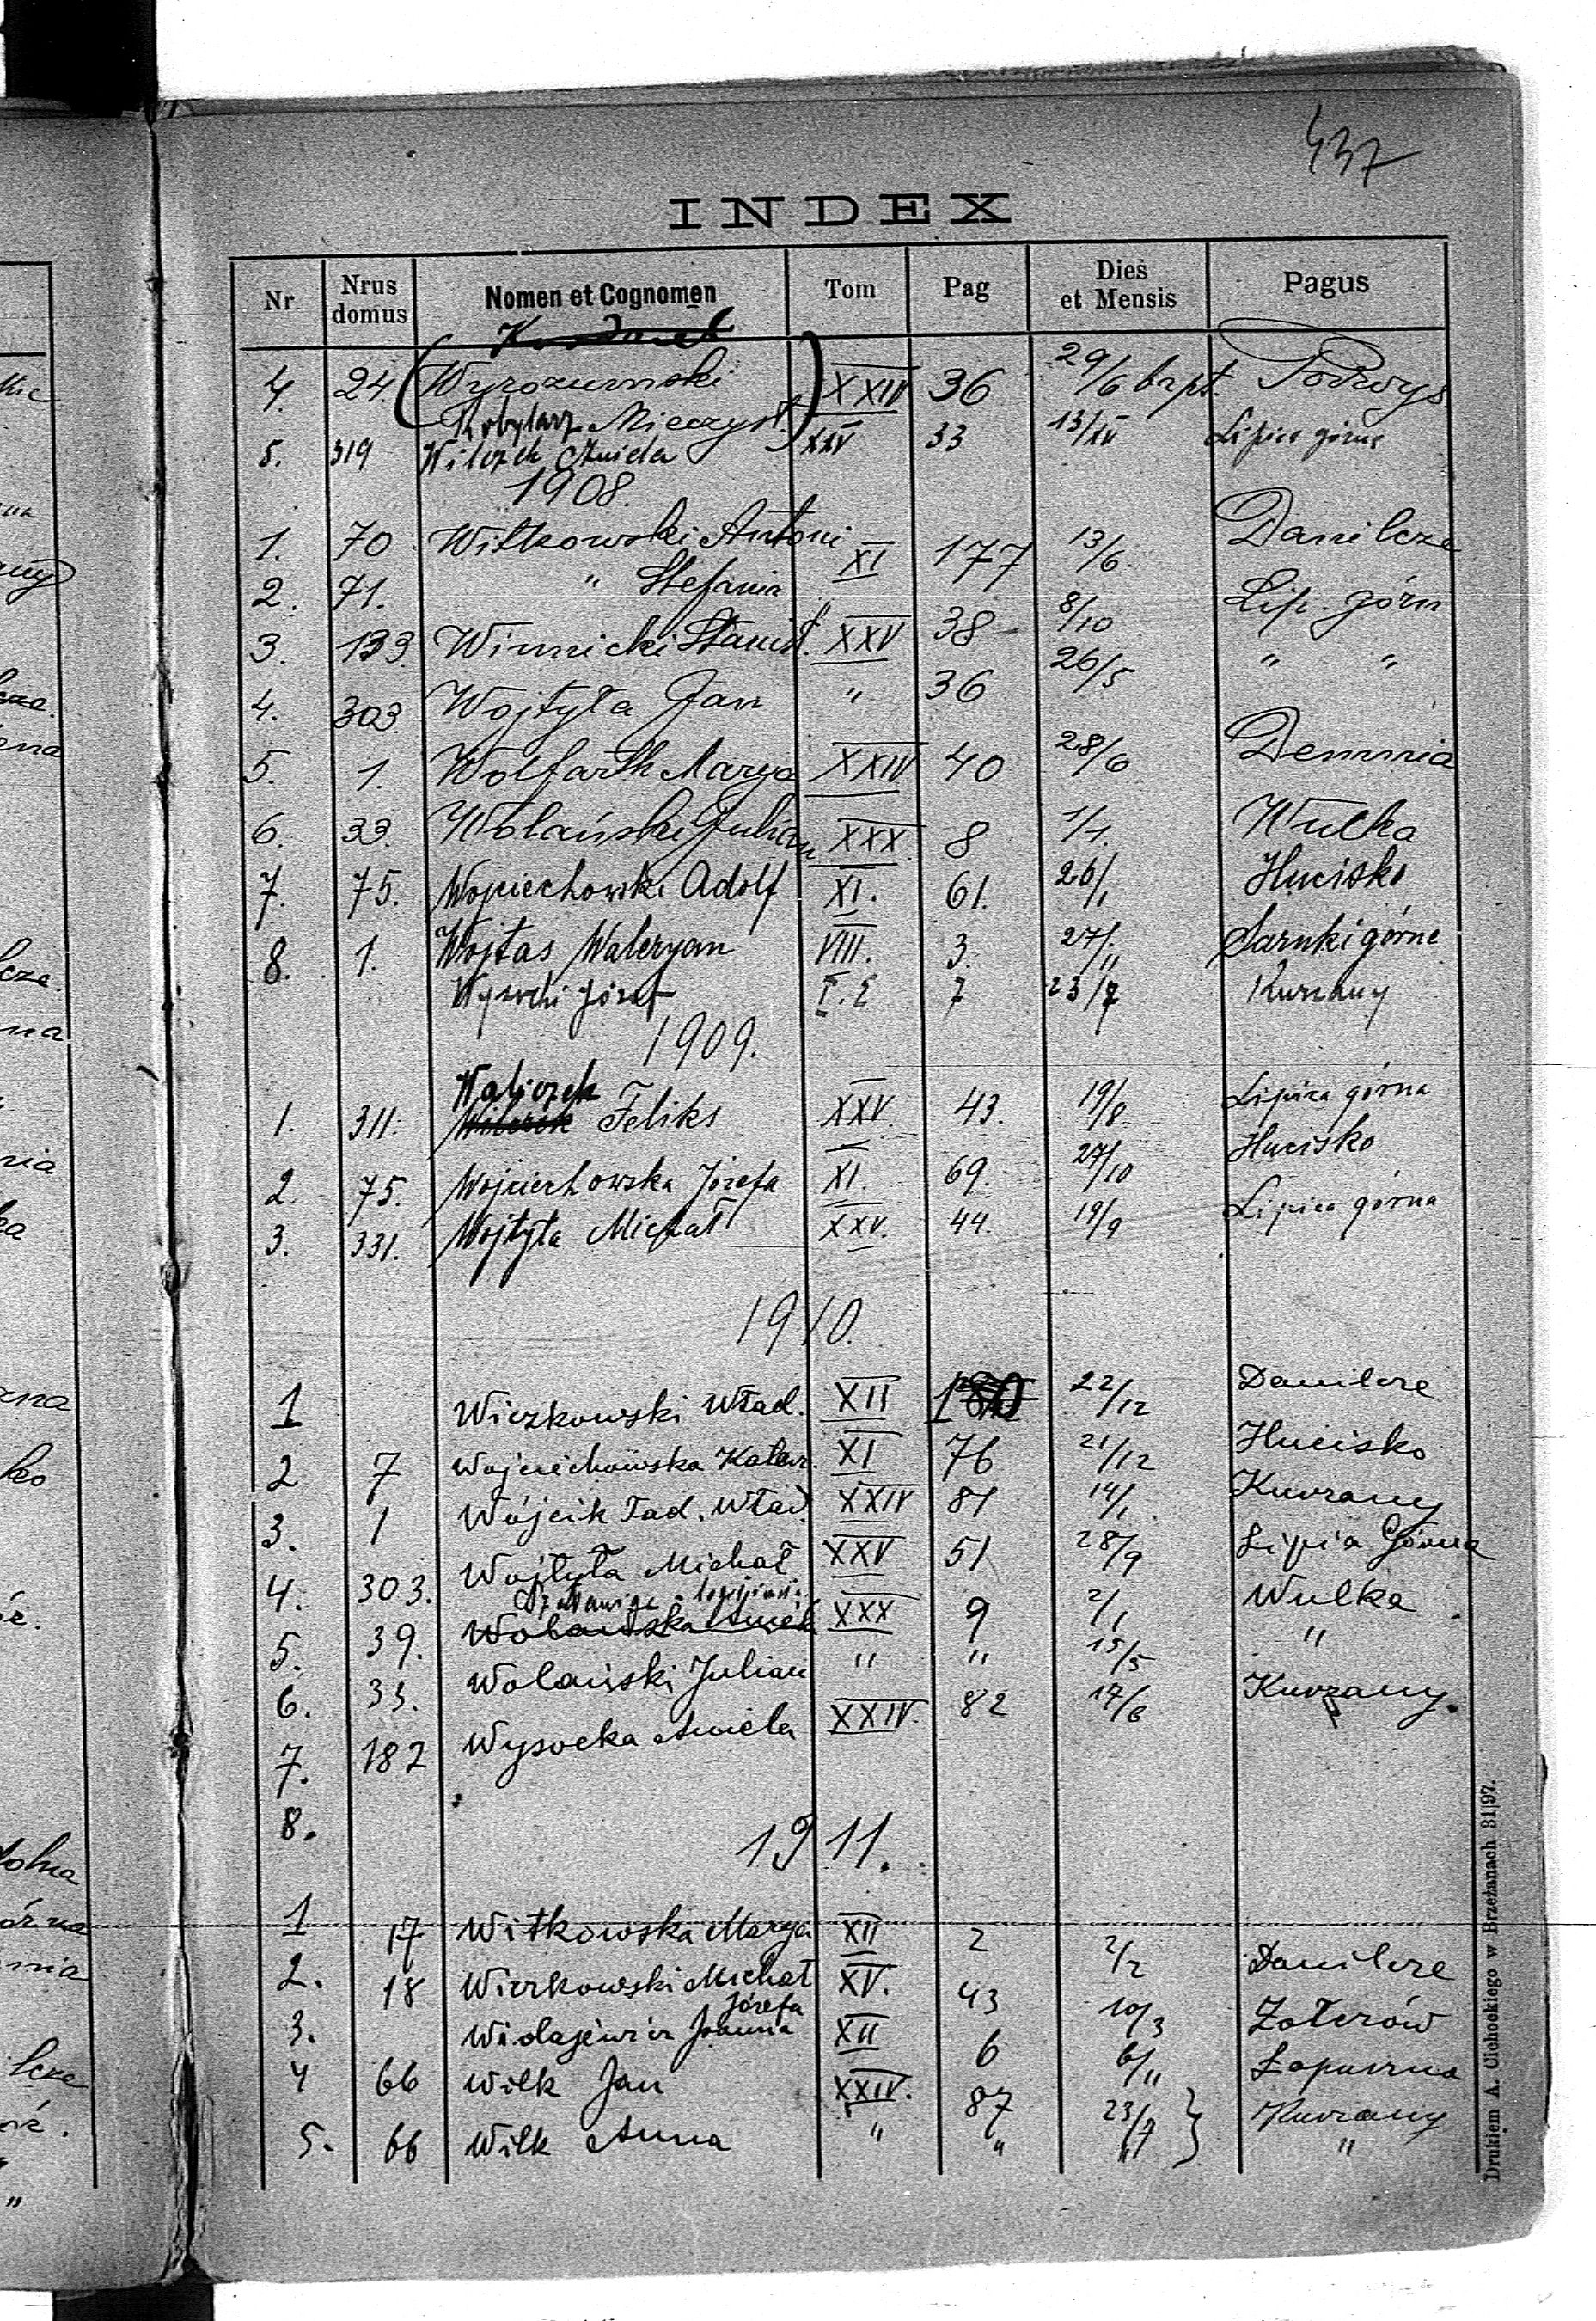 437
INDEX
Nr. Nrus domus Nomen et Cognomen Tom Pag Dies et Mensis Pagus
4. 24. (Wyrozumski XXIV 36 29/6 bapt. Podwys.
Kobylarz Mieczysł.)
5. 319 Wilczek Aniela XXV 33 13/IV Lipica górna
1908.
1. 70 Witkowski Antoni XI 177 13/6. Danilcze
2. 71. " Stefania " 38 8/10 Lip. górn
3. 133. Winnicki Stanisł. XXV 26/5 " "
4. 303. Wojtyła Jan " 36
5. 1. Wolfarth Marya XXIV 40 28/6 Demnia
6. 33. Wolański Julian XXX 8 1/1. Wulka
7. 75. Wojciechowski Adolf XI. 61. 26/1 Hucisko
8. 1. Wojtas Waleryan VIII. 3 27/11 Sarnki górne
Wysocki Józef 7 23/7 Kurzany
1909.
Waliczek
1. 311. Wilczek Feliks XXV. 43. 19/8 Lipica górna
2. 75. Wojciechowska Józefa XI. 69. 27/10 Hucisko
3. 331. Wojtyła Michał XXV. 44. 19/9 Lipica górna
1910.
1 Wiczkowski Wład. XII 180 22/12 Danilcze
2 7 Wojciechowska Katar. XI 76 21/12 Hucisko
3. 1 Wójcik Tad. Wład. XXIV 81 14/1 Kurzany
4. 303. Wojtyła Michał XXV 51 28/9 Lipia Górna
5. 39. Wolańska Aniela XXX 9 2/1 Wulka
6. 33. Wolański Julian " " 15/5 "
7. 182 Wysocka Aniela XXIV. 82 17/6 Kurzany.
8.
1911.
1 17 Witkowska Marya XII 2 2/2 Danilcze
2. 18 Wiczkowski Michał XV. 43 10/3 Zołczów
Józefa
3. Widajewicz Joanna XII 6 6/11 Łopuszna
4 66 Wilk Jan XXIV. 87 23/7 } Kurzany
5. 66 Wilk Anna " " "/7 "
Drukiem A. Cichockiego w Brzeżanach 31|97.